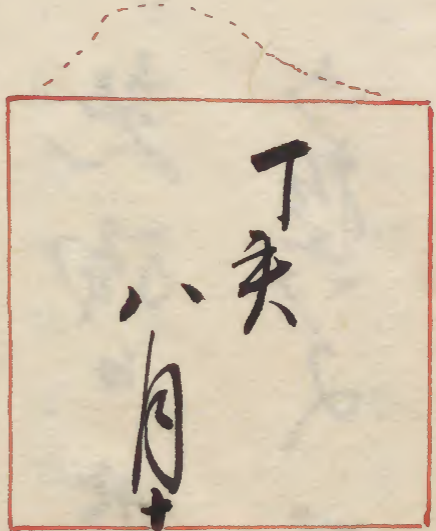 丁亥
八月十